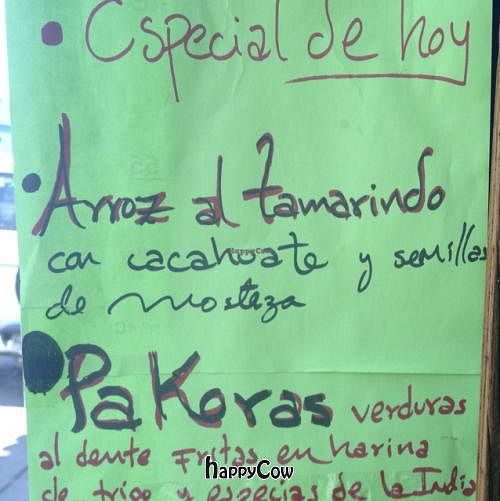 • Especial de hoy
• Arroz al tamarindo
con cacahuate y semillas
de mosteza
• Pakoras verduras
al dente fritas en harina
de trigo y especias de la India
HappyCow
HappyCow